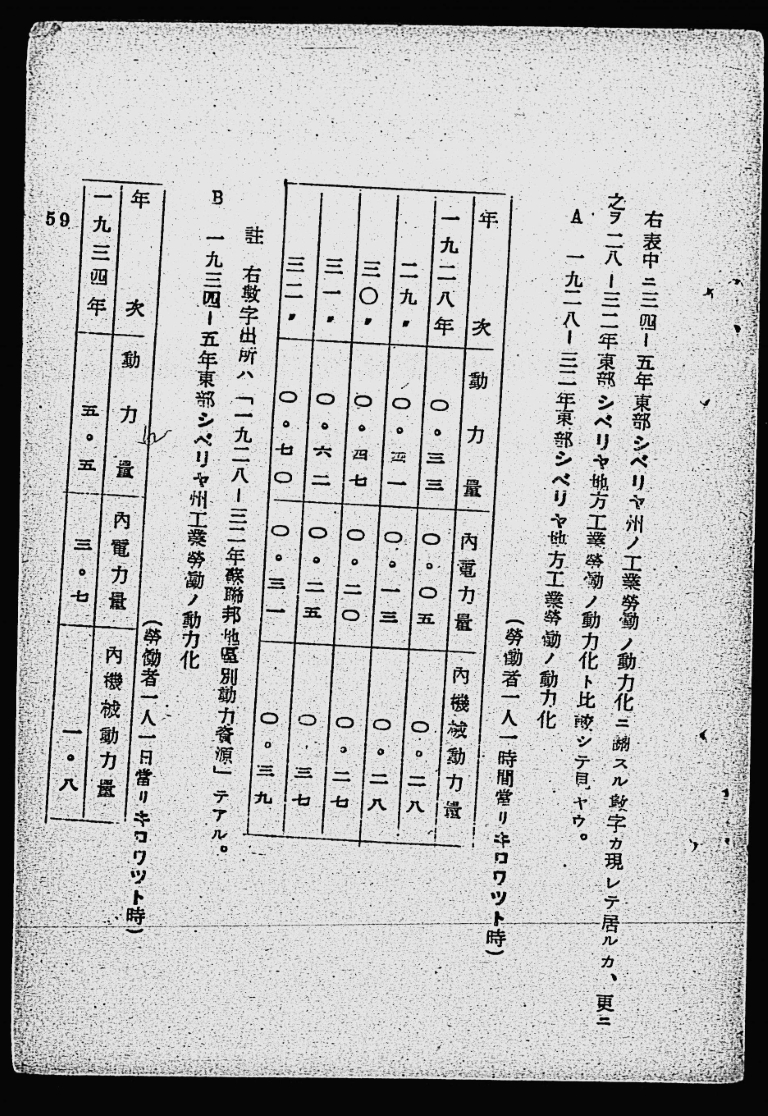 右表中ニ三四ー五年東部シベリヤ州ノ工業勞働ノ動力化ニ關スル數字カ現レテ居ルカ、更ニ
之ヲ二八ー三二年東部シベリヤ地方工業勞働ノ動力化ト比較シテ見ヤウ。
A 一九二八ー三二年東部シベリヤ地方工業勞働ノ動力化
(勞働者一人一時間當リキロワツト時)
年次 動力量 內電力量 內機械動力量
一九二八年 〇。三三 〇。〇五 〇。二八
二九〃 〇。四一 〇。一三 〇。二八
三〇〃 〇。四七 〇。二〇 〇。二七
三一〃 〇。六二 〇。二五 〇。三七
三二〃 〇。七〇 〇。三一 〇。三九
註 右數字出所ハ「一九二八ー三二年蘇聯邦地區別動力資源」テアル。
B 一九三四ー五年東部シベリヤ州工業勞働ノ動力化
(勞働者一人一日當リキロワツト時)
年次 動力量 內電力量 內機械動力量
一九三四年 五。五 三。七 一。八
59